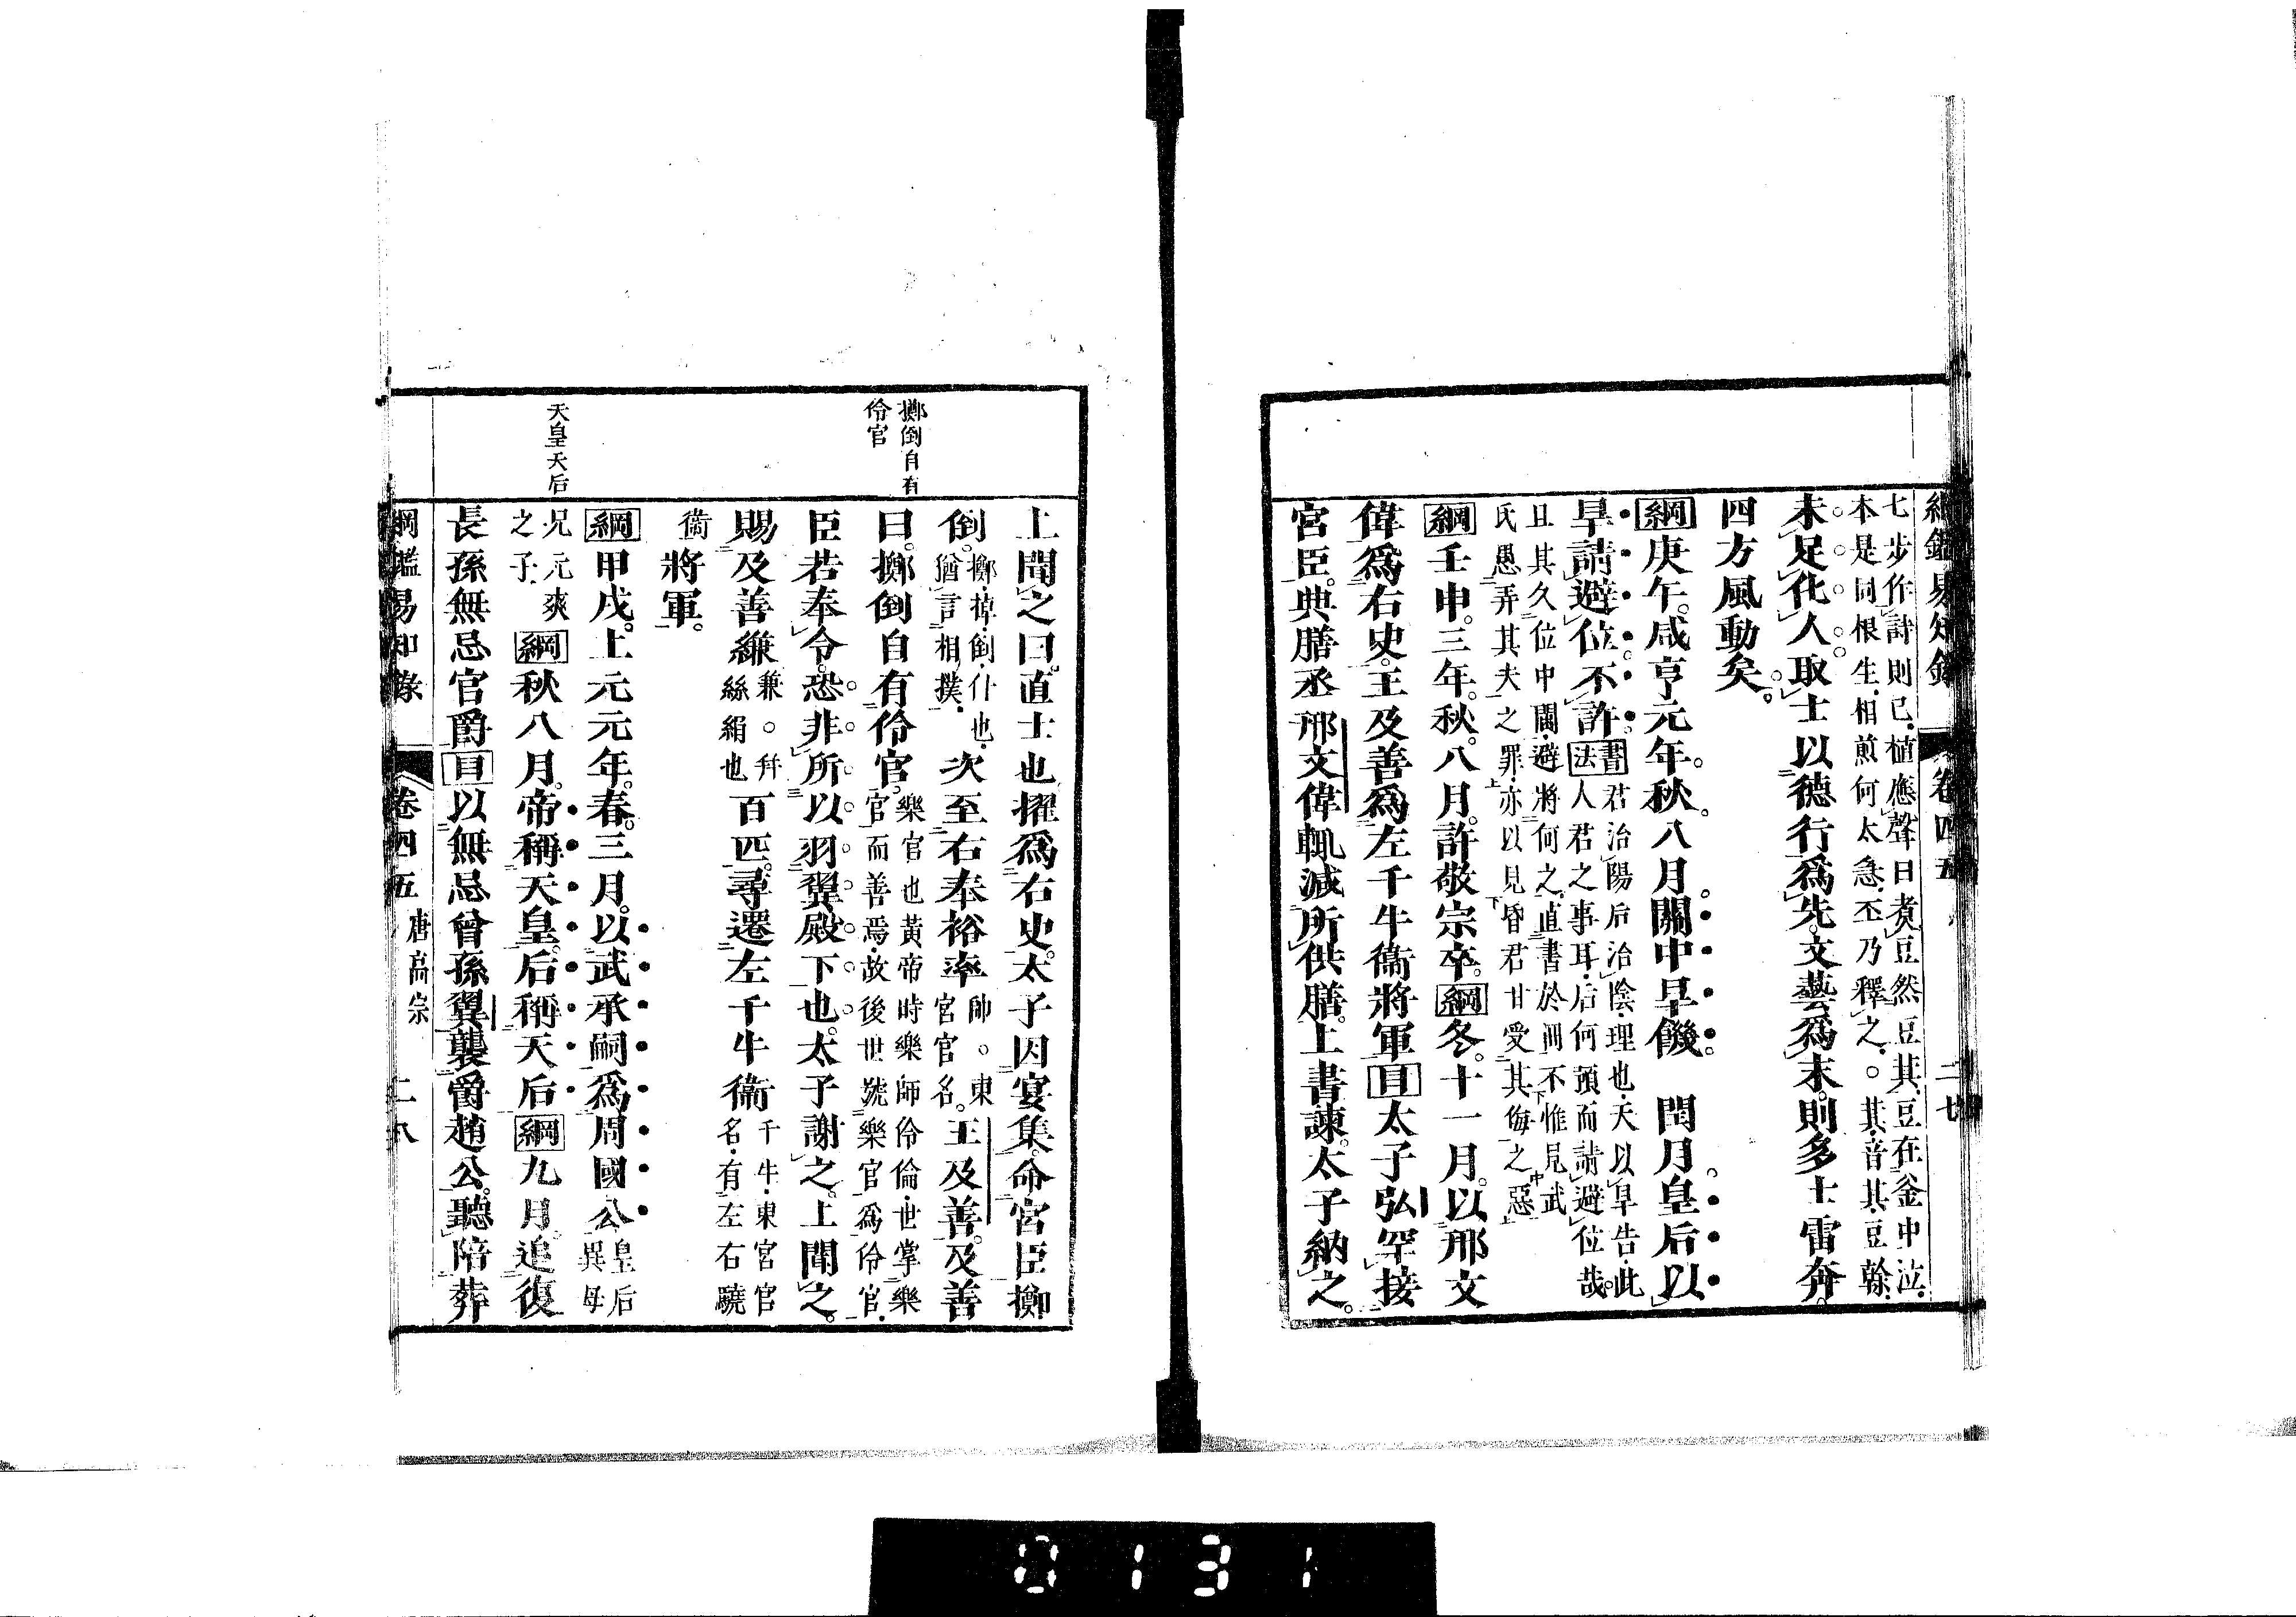 綱鑑易知錄 卷四五 二七
七步作詩則已植應聲曰煮豆然豆萁豆在釜中泣
本是同根生相煎何太急丕乃釋之○萁音其豆稭
未足化人取士以德行爲先文藝爲末則多士雷奔
四方風動矣
綱庚午咸亨元年秋八月關中旱饑 閏月皇后以
旱請避位不許書法君治陽后治陰理也天以旱告此
人君之事耳后何預而請避位哉
且其久位中闈避將何之直書於冊不惟見武
氏愚弄其夫之罪亦以見昏君甘受其侮之惡
綱壬申三年秋八月許敬宗卒綱冬十一月以邢文
偉爲右史王及善爲左千牛衞將軍目太子弘罕接
宮臣典膳丞邢文偉輒減所供膳上書諫太子納之
上聞之曰直士也擢爲右史太子因宴集命宮臣擲
倒擲掉倒仆也
猶言相撲次至右奉裕率帥○東
宮官名王及善及善
曰擲倒自有伶官樂官也黃帝時樂師伶倫世掌樂
官而善焉故後世號樂官爲伶官
臣若奉令恐非所以羽翼殿下也太子謝之上聞之
賜及善縑兼○幷
絲絹也百匹尋遷左千牛衞千牛東宮官
名有左右驍
衞將軍
綱甲戌上元元年春三月以武承嗣爲周國公皇后
異母
兄元爽
之子綱秋八月帝稱天皇后稱天后綱九月追復
長孫無忌官爵目以無忌曾孫翼襲爵趙公聽陪葬
綱鑑易知錄 卷四五 唐高宗 二八
擲倒自有
伶官
天皇天后
0131